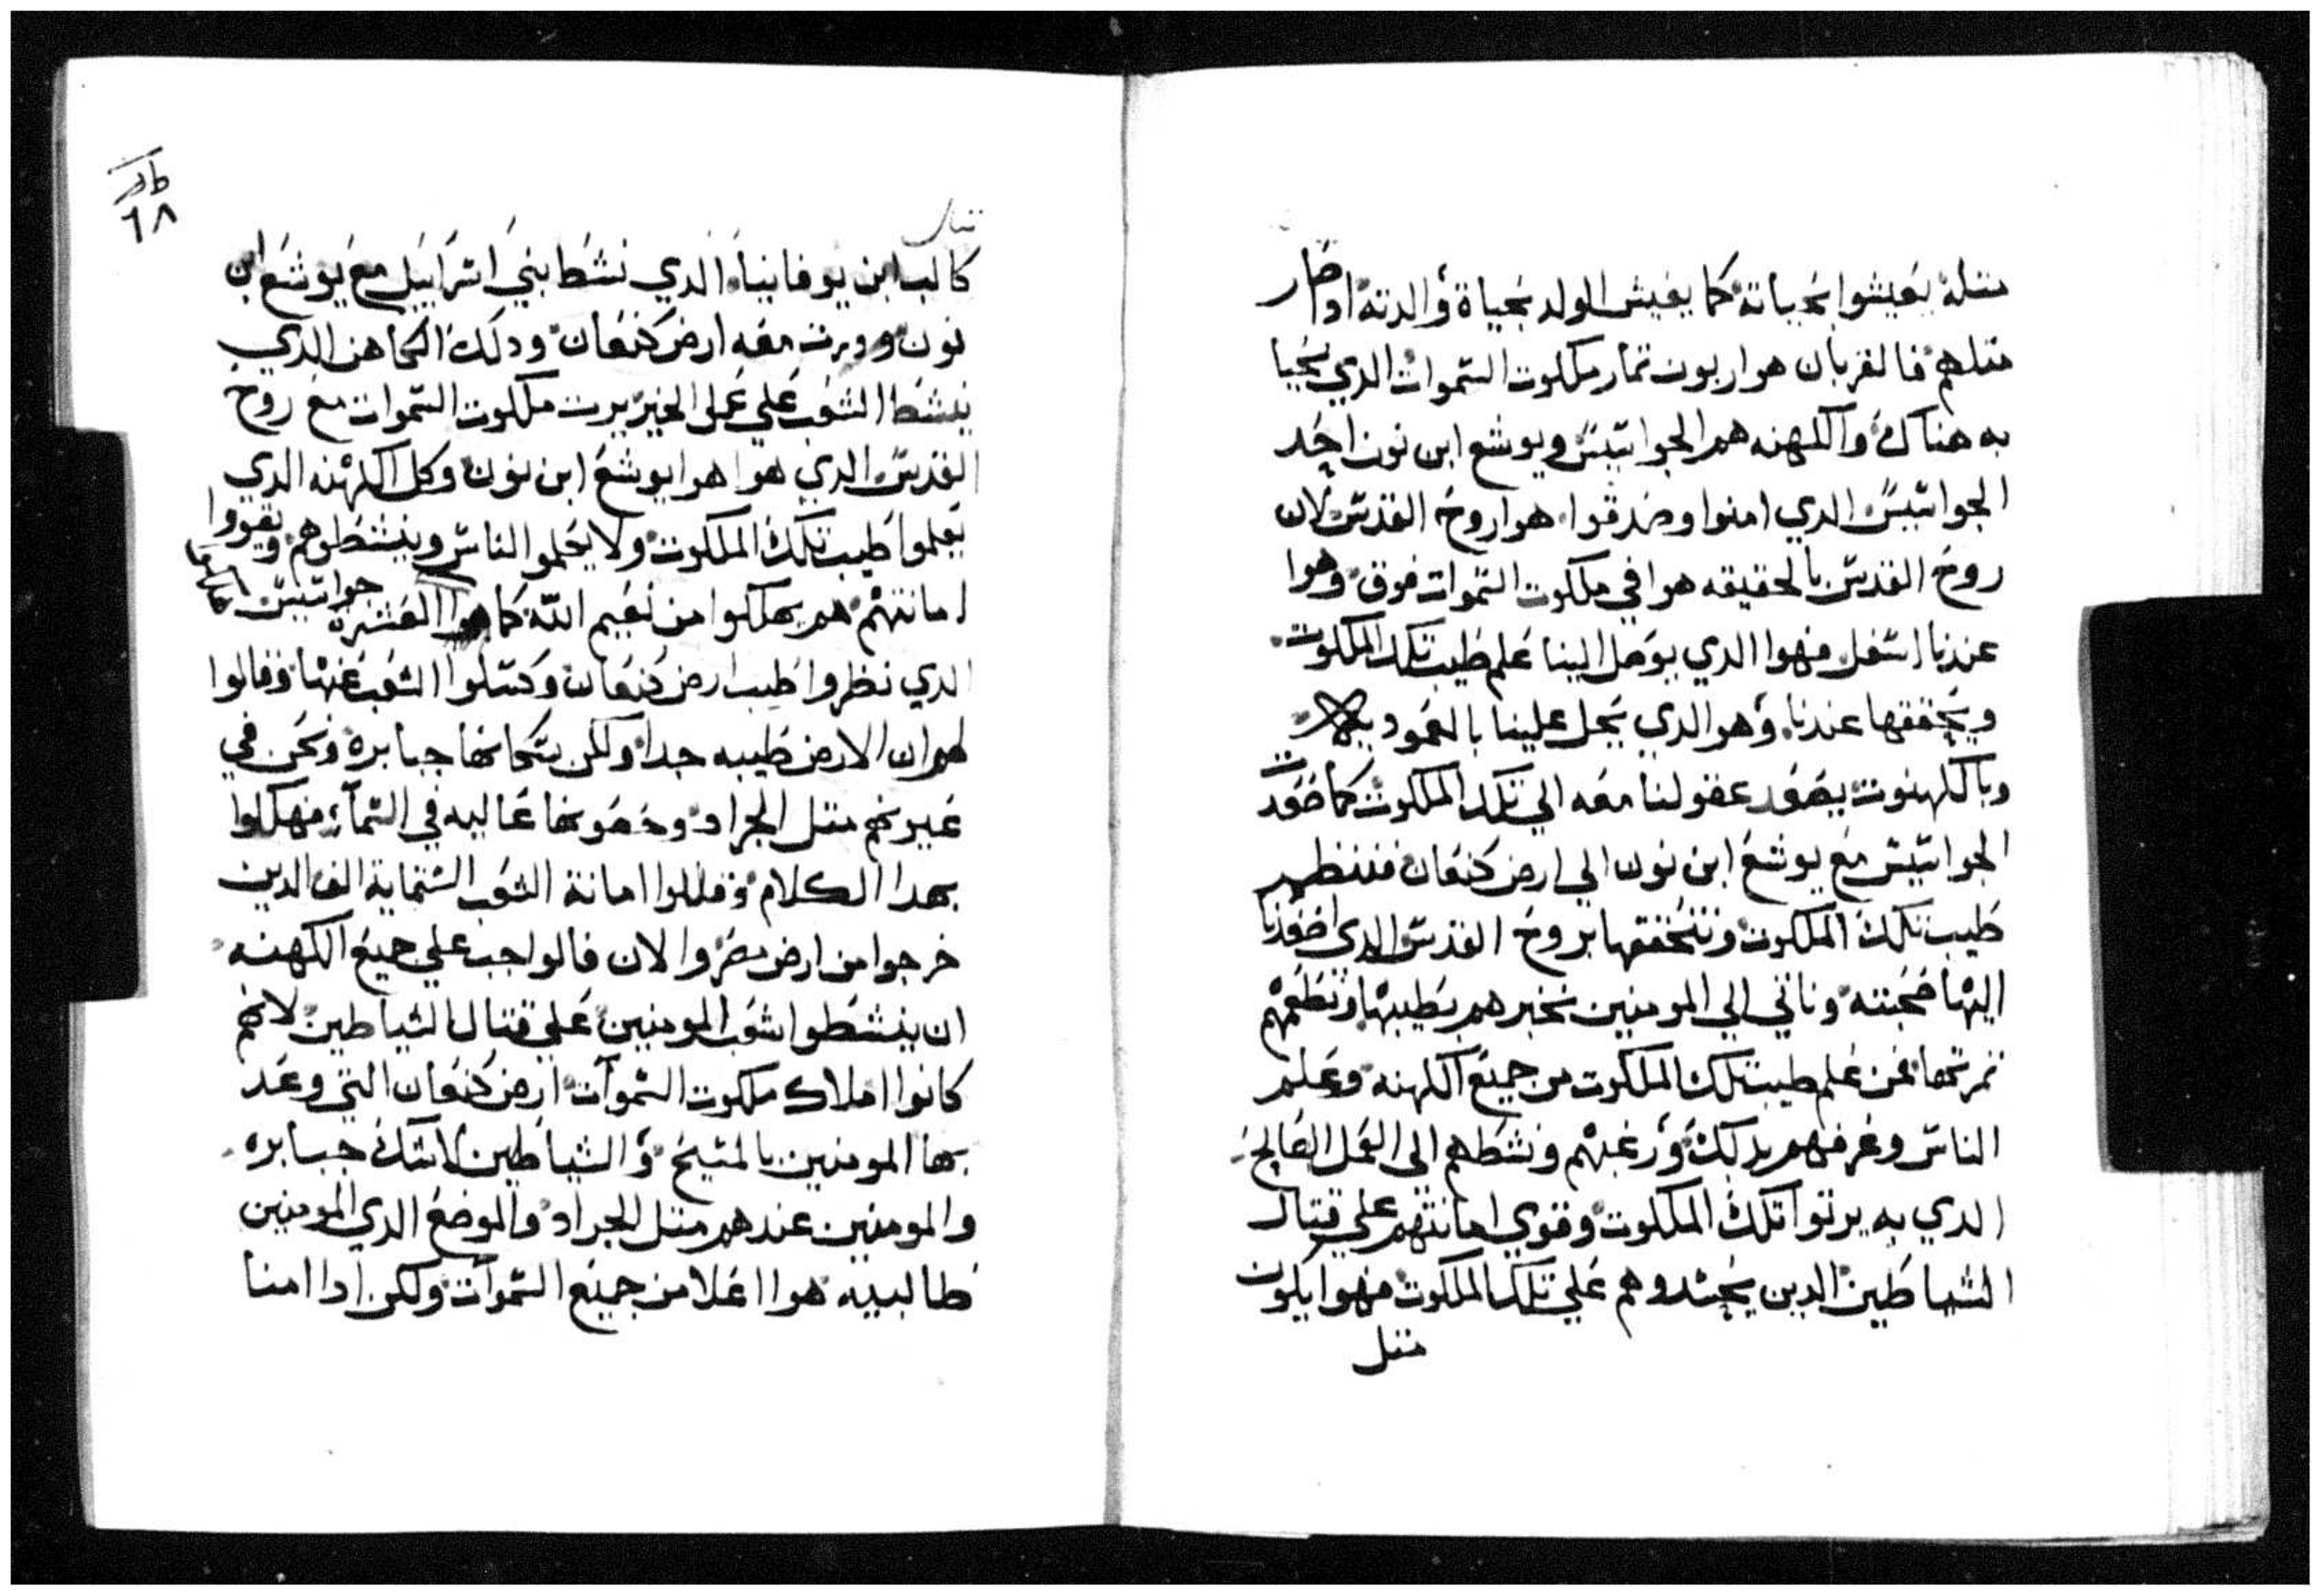 متله يعيشوا بحياته كما يعيش الولد بحياة والدته اوصار
متلهم فالقربان هوا ربوت تمار ملكوت السموات الدي يحيا
به هناك والكهنه هم الجواسيس ويوشع ابن نون احد
الجواسيس الدي امنوا وصدقوا هوا روح القدس لان
روح القدس بالحقيقه هوا في ملكوت السموات فوق وهوا
عندنا اسفل فهوا الدي يوصل الينا علم طيب تلك الملكوت
ويحققها عندنا وهو الدي يحل علينا بالعموديه
وبالكهنوت يصعد عقولنا معه الي تلك الملكوت كما صعدت
الجواسيس مع يوشع ابن نون الي ارض كنعان فننظر
طيب تلك الملكوت ونتحققها بروح القدس الدي اصعدنا
اليها صحبته وناتي الي المومنين نخبرهم بطيبها ونطعمهم
تمرتها فمن علم طيب تلك الملكوت من جميع الكهنه وعلم
الناس وعرفهم بدلك ورغبهم ونشطهم الى العمل الصالح
الدي به يرتوا تلك الملكوت وقوي امانتهم علي قتال
الشياطين الدين يحسدوهم علي تلك الملكوت فهوا يكون
متل
٦٨
كالب ابن يوفانيا الدي نشط بني اسراييل مع يوشع ابن
نون وورت معه ارض كنعان ودلك الكاهن الدي
ينشط الشعب علي عمل الخير يرت ملكوت السموات مع روح
القدس الدي هوا هوا يوشع ابن نون وكل الكهنه الدي
يعلموا طيب تلك الملكوت ولا يعلموا الناس وينشطوهم ويقووا
امانتهم هم يهلكوا من نعيم الله كما هلكوا العشرة جواسيس
الدي نظروا طيب ارض كنعان وكسلوا الشعب عنها وقالوا
لهم ان الارض طيبه جدا ولكن سكانها جبابره ونحن في
عيونهم متل الجراد وحصونها عاليه في السماء فهلكوا
بهدا الكلام وقللوا امانة الشعب الستماية الف الدين
خرجوا من ارض مصر والان فالواجب علي جميع الكهنه
ان ينشطوا شعب المومنين علي قتال الشياطين لانهم
كانوا املاك ملكوت السموات ارض كنعان التي وعد
بها المومنين بالمسيح والشياطين لاشك جبابره
والمومنين عندهم متل الجراد والموضع الدي المومنين
طالبيه هوا اعلا من جميع السموات ولكن ادا امنا